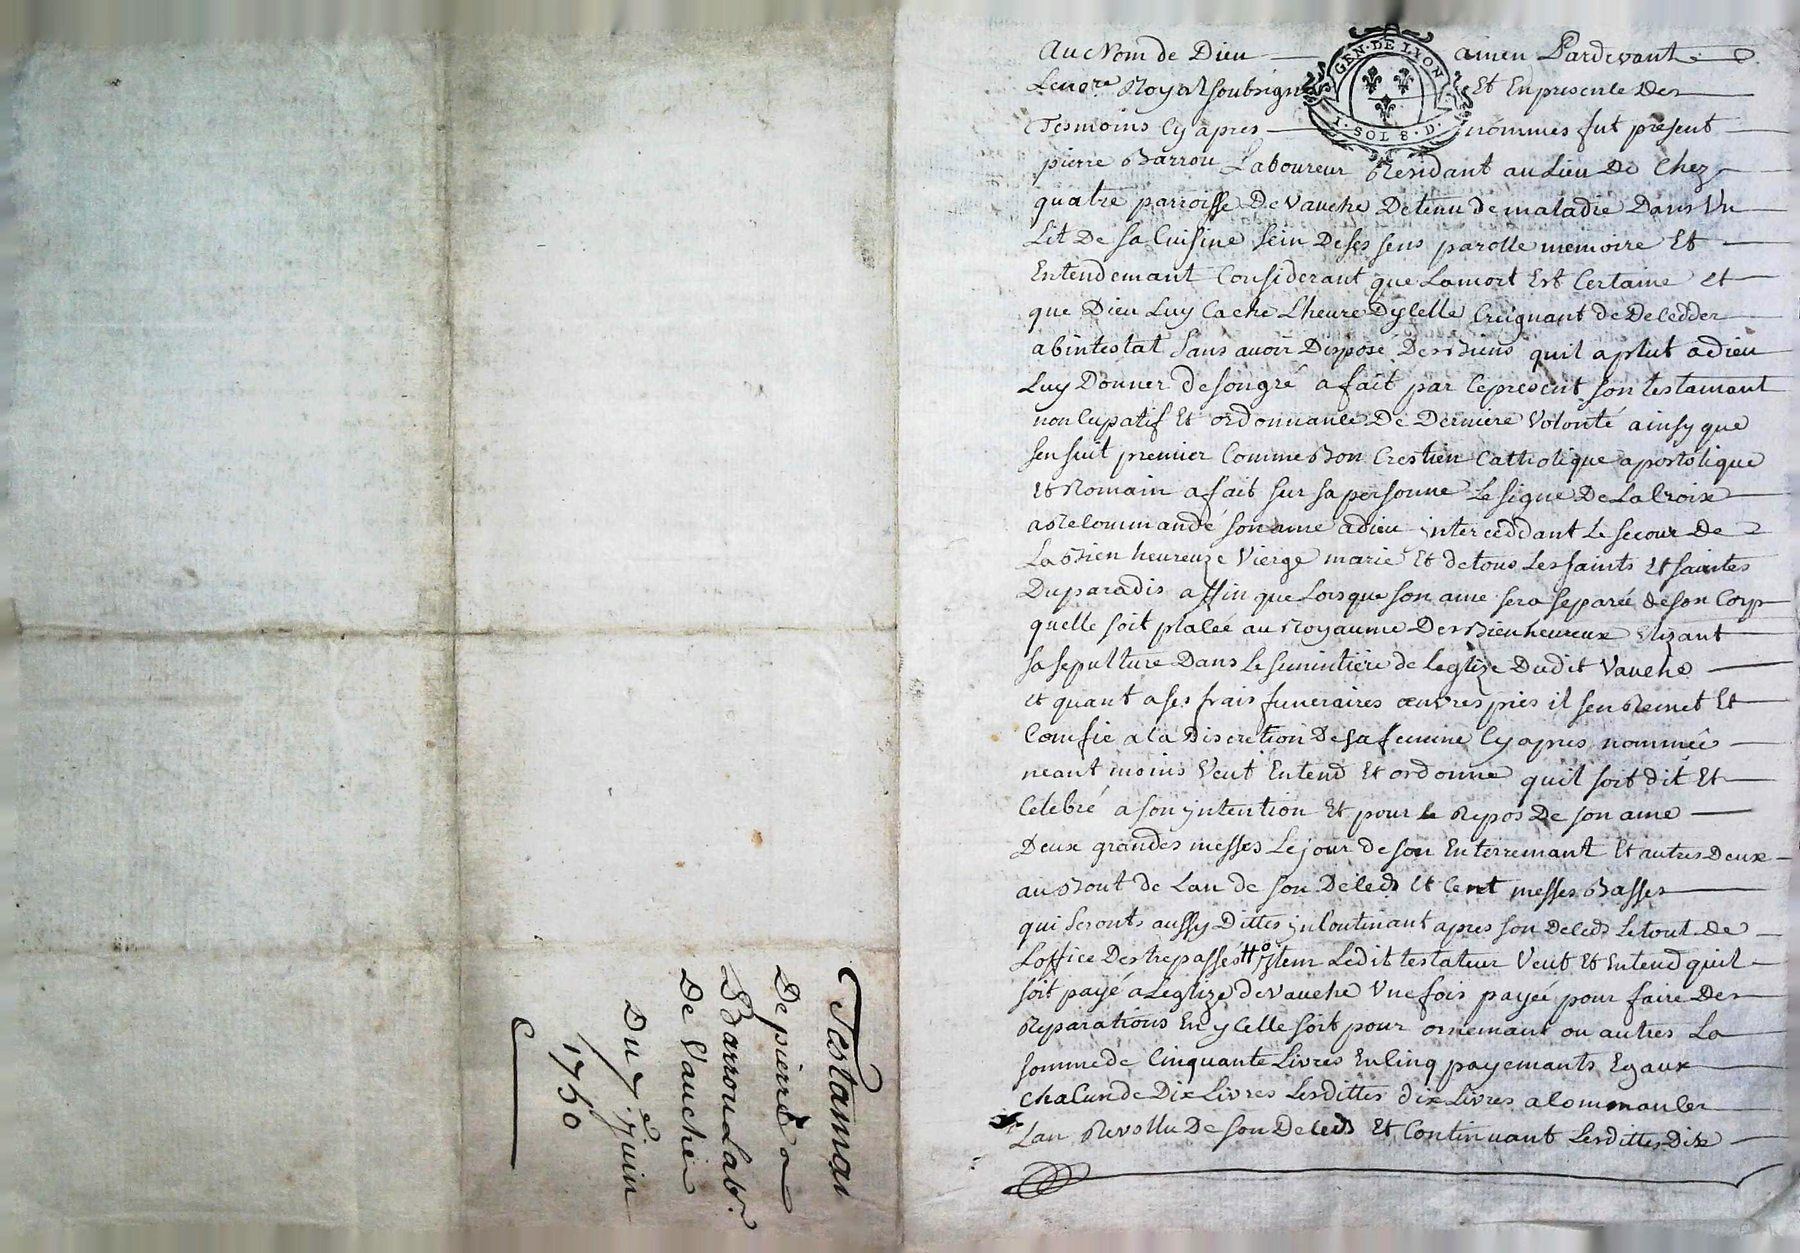 Testaman
De pierre
Barrou Labr.
De Vauche
Du 7e Juin
1750
GEN. DE LYON
1. SOL 8. D.
Au Nom de Dieu amen Pardevant
Le nore Royal soubsigné Et En presence Des
Tesmoins Cy apres nommes fut present
pierre Barrou Laboureur Residant au Lieu De Chez
quatre parroisse De Vauche Detenu de maladie Dans Un
Lit De sa Cuisine sein De ses sens parolle memoire Et
Entendemant Considerant que La mort Est Certaine et
que Dieu Luy Cache Lheure Dycelle Creignant de Decedder
abintestat sans avoir Disposé Des Biens quil a plut a dieu
Luy Donner de son gré a fait par Ce present son testamant
non Cupatif Et ordonnance De Derniere Volonté ainsy que
sen suit premier Comme Bon Crestien Catholique apostolique
Et Romain a fait sur sa personne Le signe De La Croix
a Recommandé son ame a dieu interceddant Le secour De
La Bien heureuze Vierge marie Et de tous Les saints Et saintes
Du paradis affin que Lors que son ame sera separée de son Corp
quelle soit placée au Royaume Des Bienheureux Elizant
sa sepulture Dans Le simintiere de Leglize Dudit Vauche
et quant a ses frais funeraires œuvres pies il sen Remet Et
Comfie a la Discretion De sa femme Cy apres nommée
neant moins Veut Entend Et ordonne quil soit dit Et
Celebré a son intention Et pour le Repos De son ame
Deux grandes messes Le jour de son Enterremant Et autres Deux
au Bout de Lan de son Deceds Et Cent messes Basses
qui seront aussy Dittes inContinant apres son Deceds Le tout de
Loffice Des trepassés Ho Item Ledit testateur Veut Et Entend quil
soit payé a Leglize de Vauche Une fois payée pour faire Des
Reparations En ycelle soit pour ornemant ou autres La
somme de Cinquante Livres En Cinq payemants Egaux
chaCun de Dix Livres Lesdittes dix Livres a Commancer
Lan Revollu De son Deceds Et Continuant Lesdittes Dix